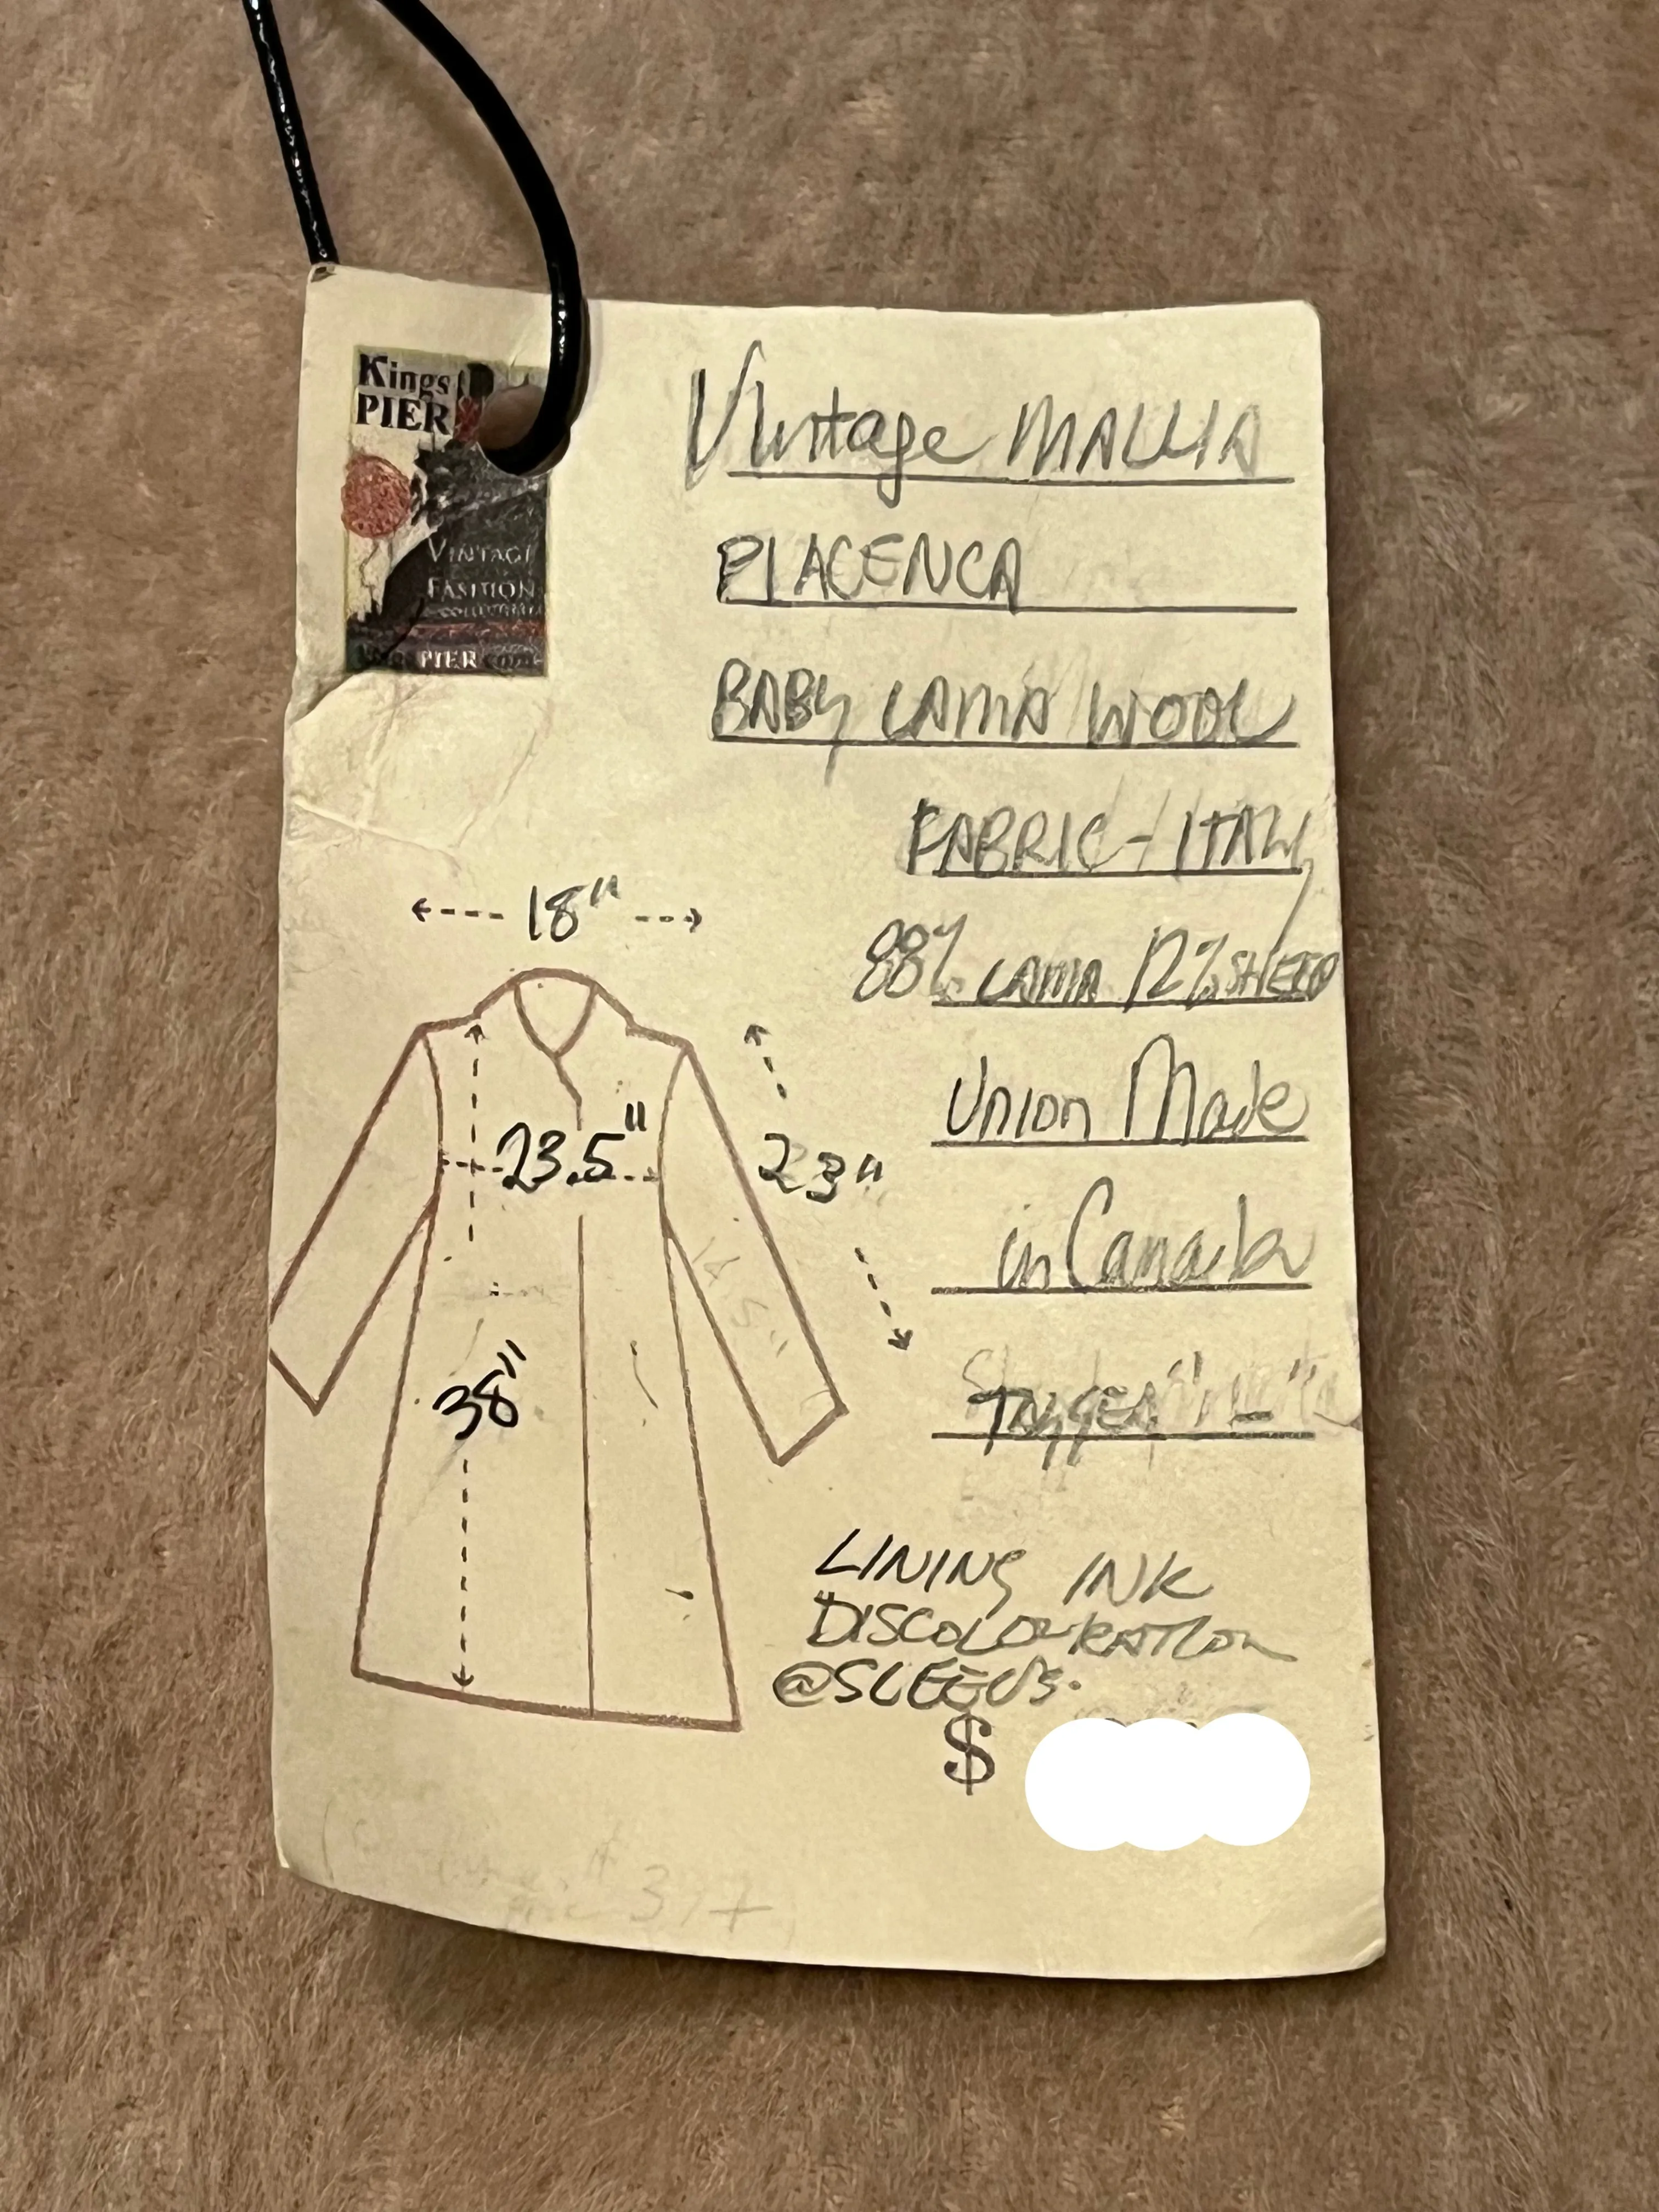 Kings
PIER
VINTAGE
FASHION
PIER.com
Vintage MALLIA
PIACENCA
BABY LAMA WOOL
FABRIC - ITALY
88% LAMA 12% SHEEP
Union Made
in Canada
TAGGED
18"
23.5"
23"
38"
LINING INK
DISCOLOURATION
@SLEEVES.
$